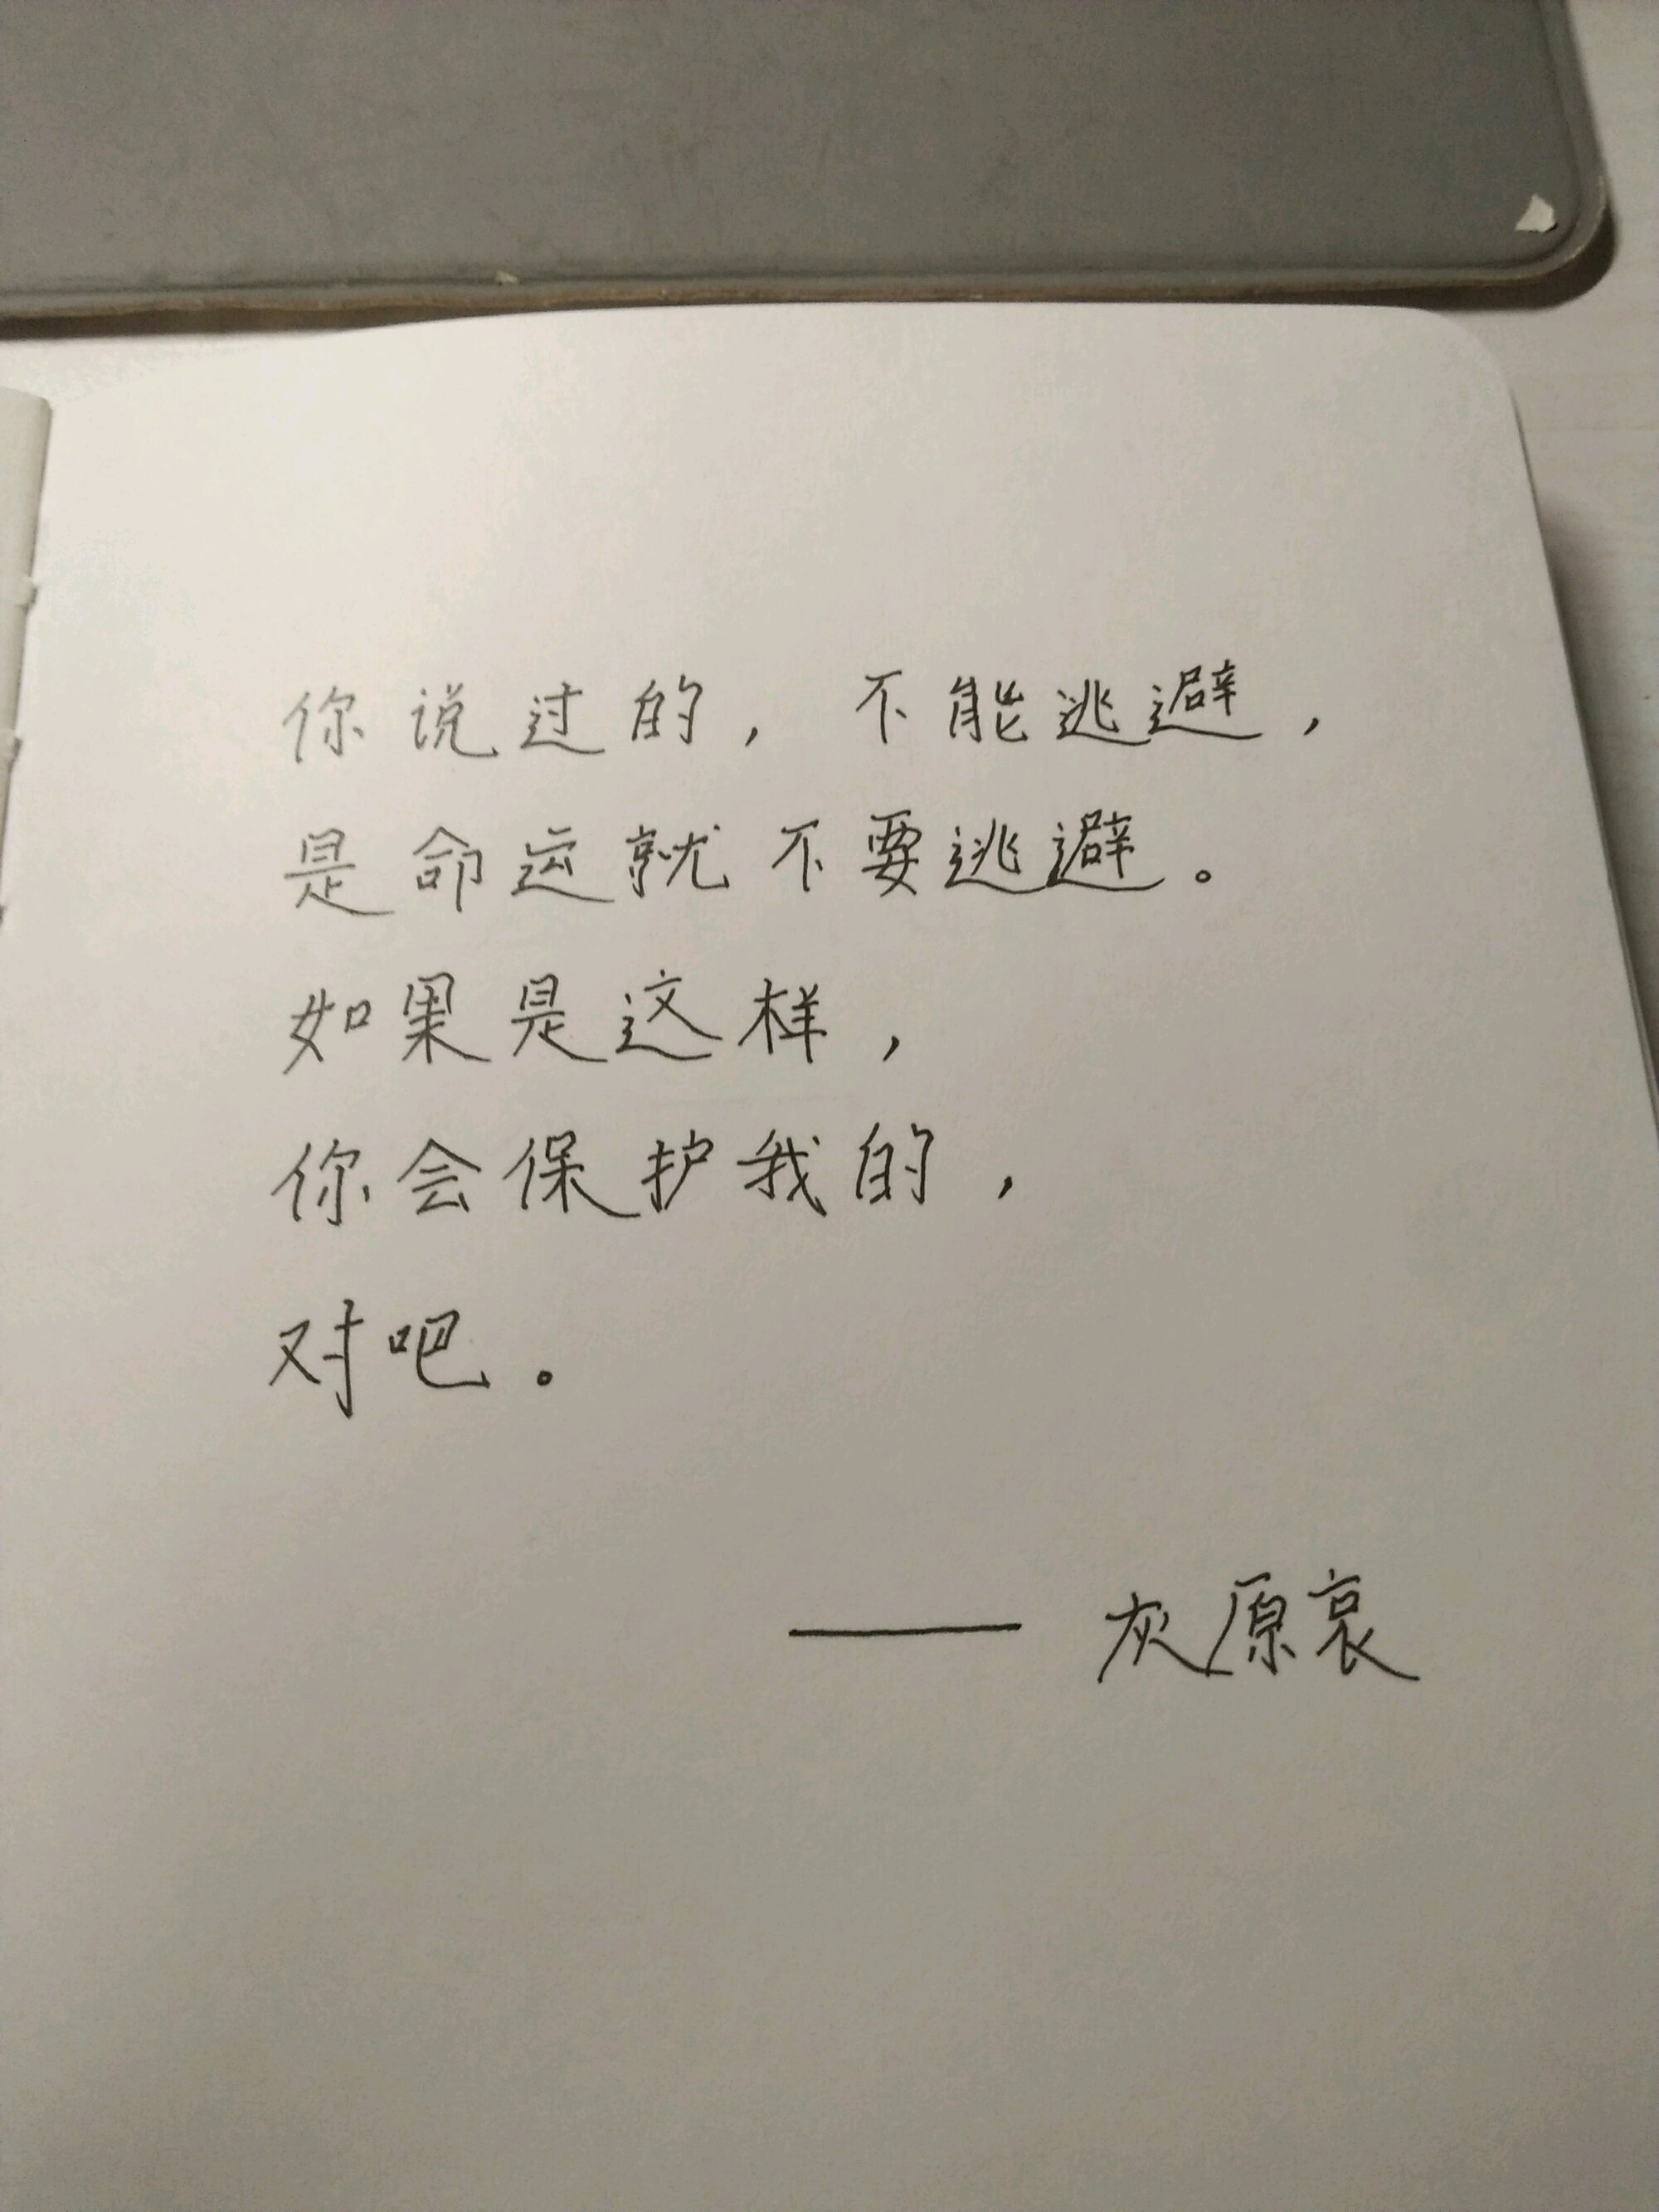 你说过的，不能逃避，
是命运就不要逃避。
如果是这样，
你会保护我的，
对吧。
—— 灰原哀